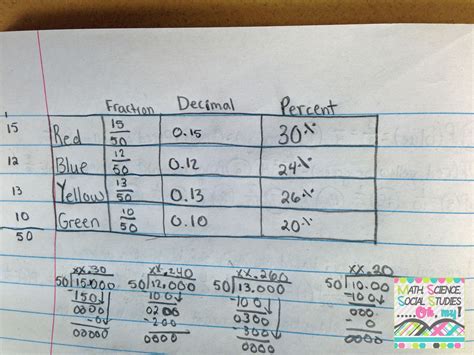 Fraction Decimal Percent
15 Red 15/50 0.15 30%
12 Blue 12/50 0.12 24%
13 Yellow 13/50 0.13 26%
10 Green 10/50 0.10 20%
50
xx.30 xx.240 xx.260 xx.20
50)15.000 50)12,000 50)13,000 50)10.00
-150 -100 -100 -100
0000 0200 0300 0000
-200 -300
0000 0000
MATH SCIENCE
SOCIAL STUDIES
.....Oh, my!